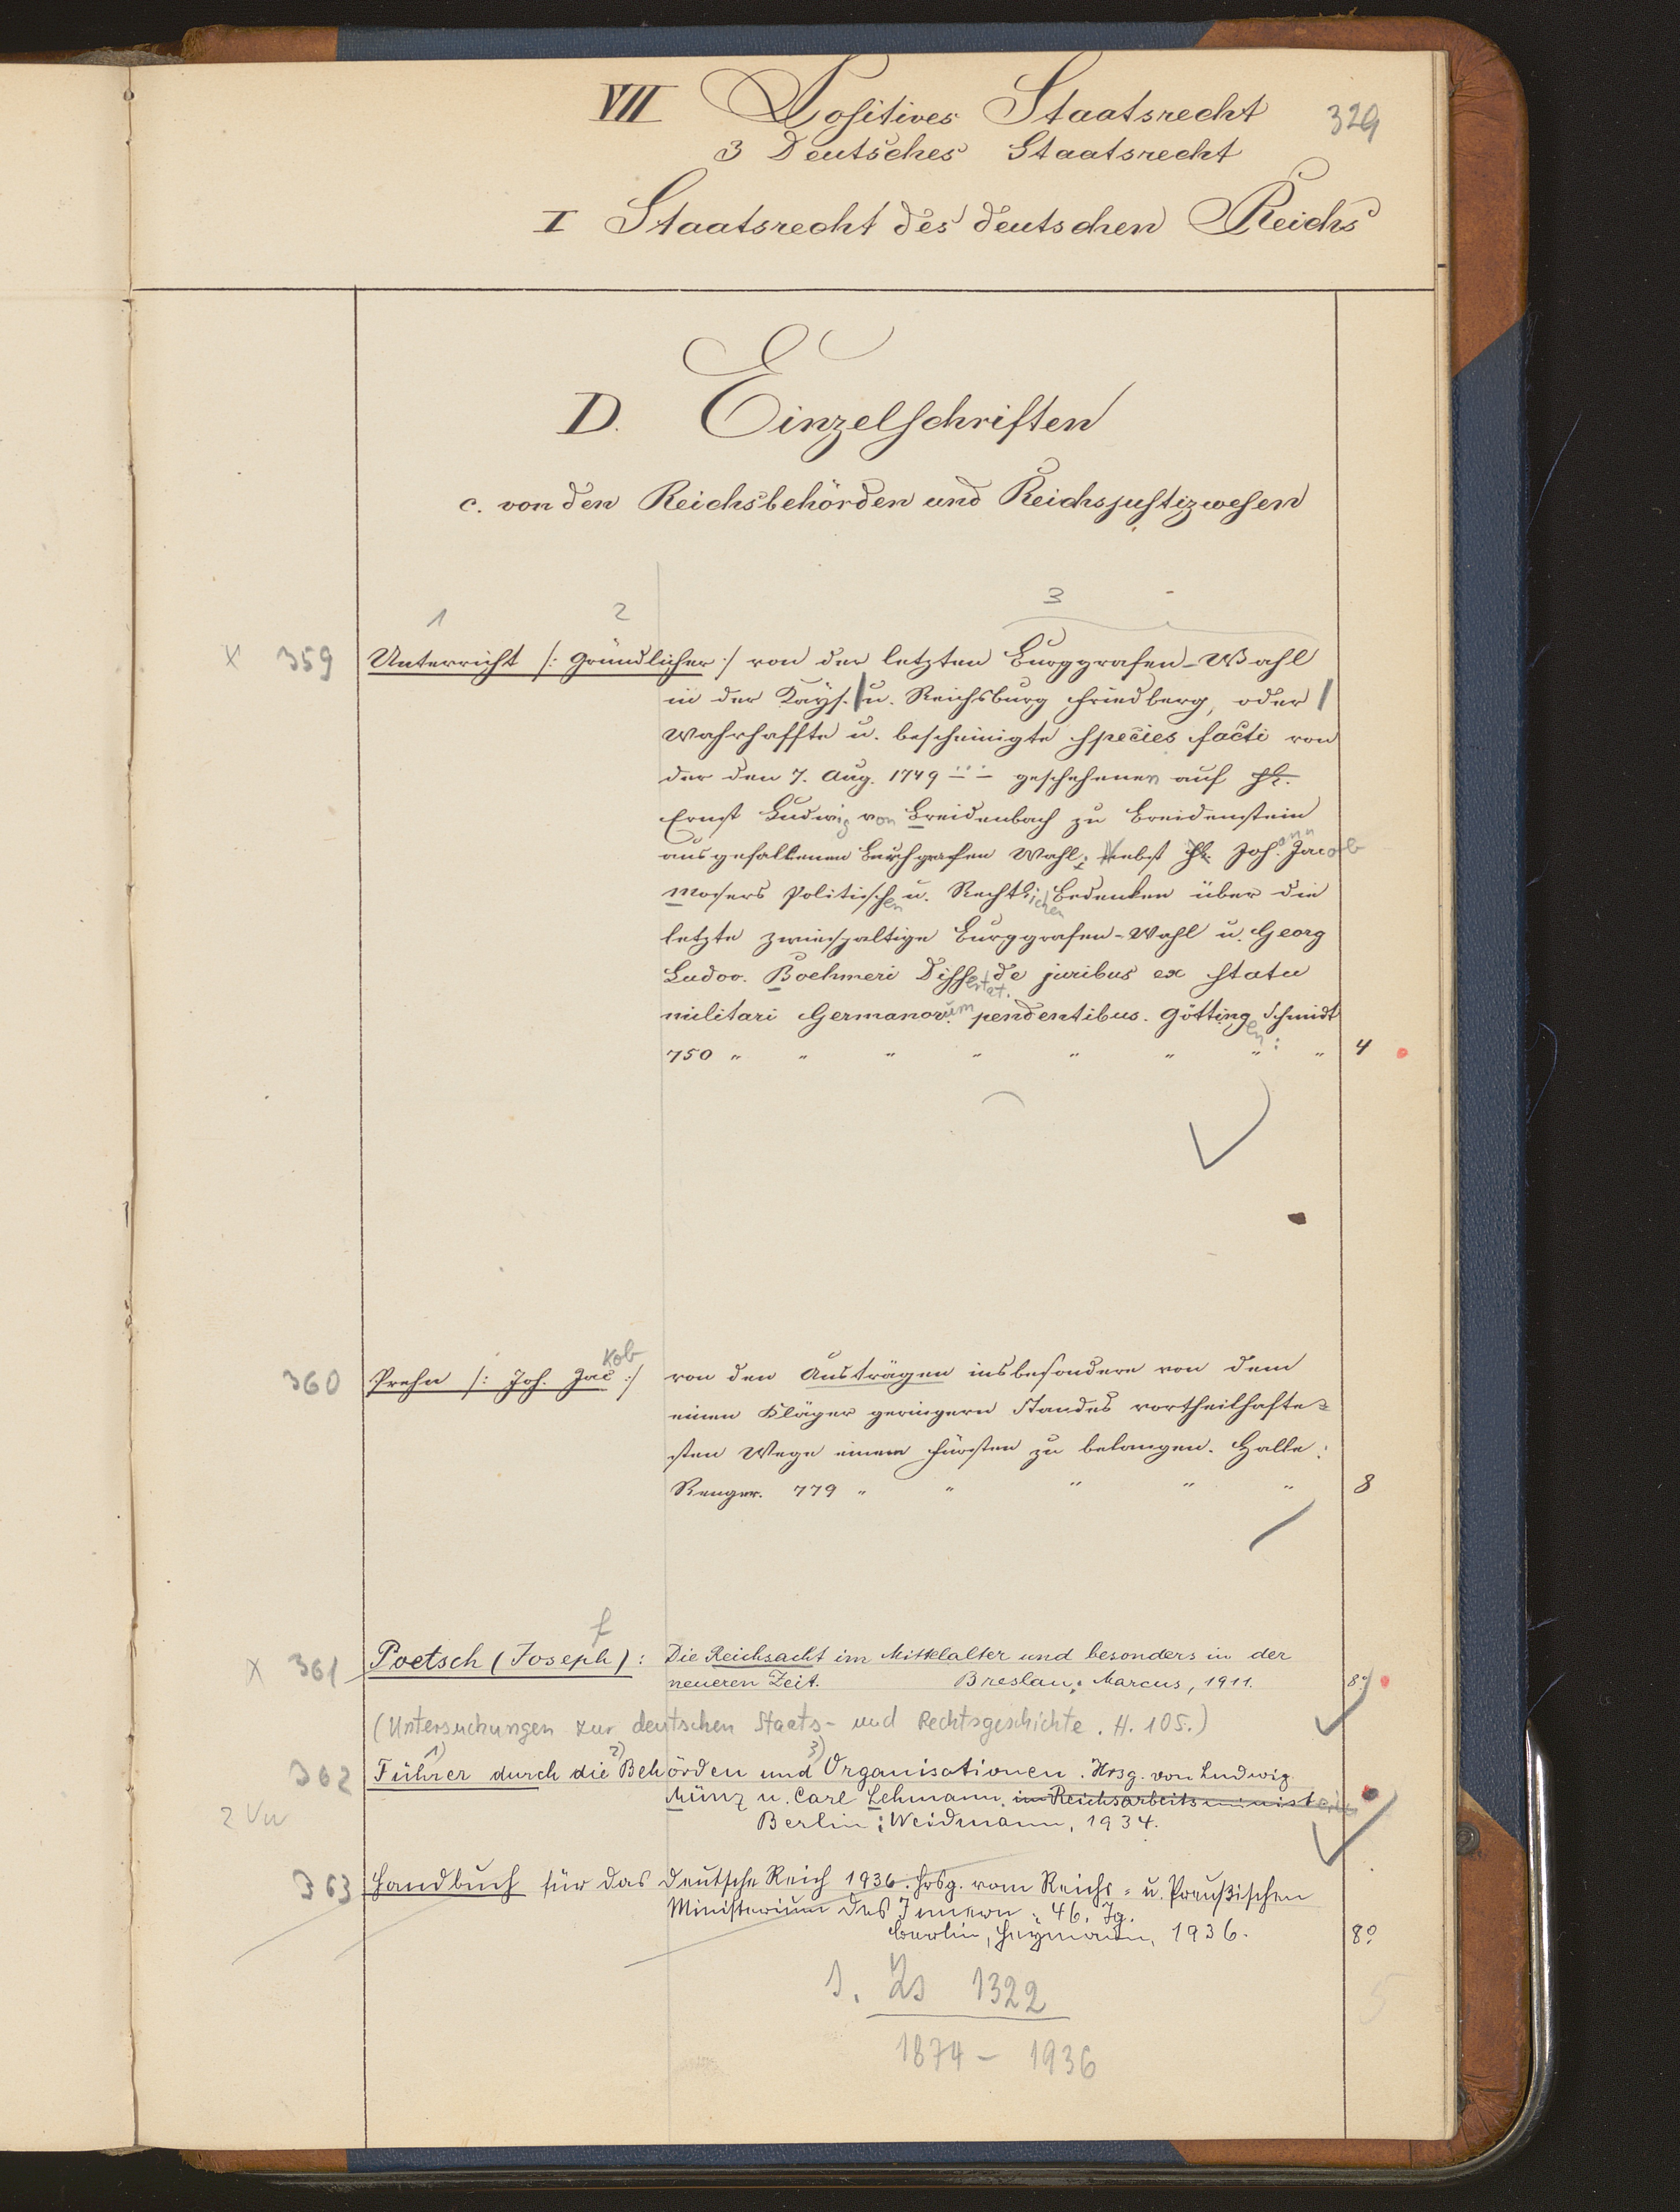 VII Positives Staatsrecht 329
3 Deutsches Staatsrecht
I Staatsrecht des deutschen Reichs
D. Einzelschriften
c. von den Reichsbehörden und Reichsjustizwesen
1 2 3
x 359 Unterricht /: gründlicher :/ von der letzten Burggrafen-Wahl
in der Kays. u. Reichsburg Friedberg, oder
wahrhaffte u. bescheinigte species facti von
der den 7. Aug. 1749 geschehenen auf H.
Ernst Ludwig von Breidenbach zu Breidenstein
ausgefallenen Burggrafen Wahl; nebst H. Johann Jacob
Mosers Politischen u. Rechtlichen Bedenken über die
letzte zwiespaltige Burggrafen-Wahl u. Georg
Ludov. Boehmeri Dissertat. de juribus ex statu
militari Germanorum pendentibus. Göttingen: Schmidt
750 " " " " " " " " 4
360 Prehn /: Joh. Jackob :/ von den Austrägen insbesondere von dem
einen Kläger geringern Standes vortheilhafte=
sten Wege einem Fürsten zu belangen. Halle:
Renger. 779 " " " " " 8
x 361 Poetsch (Joseph): Die Reichsacht im Mittelalter und besonders in der
f
neueren Zeit. Breslau: Marcus, 1911. 8°
(Untersuchungen zur deutschen Staats- und Rechtsgeschichte. H. 105.)
1) 2) 3)
362 Führer durch die Behörden und Organisationen. Hrsg. von Ludwig
Münz u. Carl Lehmann. im Reichsarbeitsministerium
2 Vw
Berlin: Weidmann, 1934.
363 Handbuch für das Deutsche Reich 1936. Hrsg. vom Reichs- u. Preußischen
Ministerium des Innern. 46. Jg.
Berlin, Heymann, 1936. 8°
s. Zs 1322
1874 - 1936